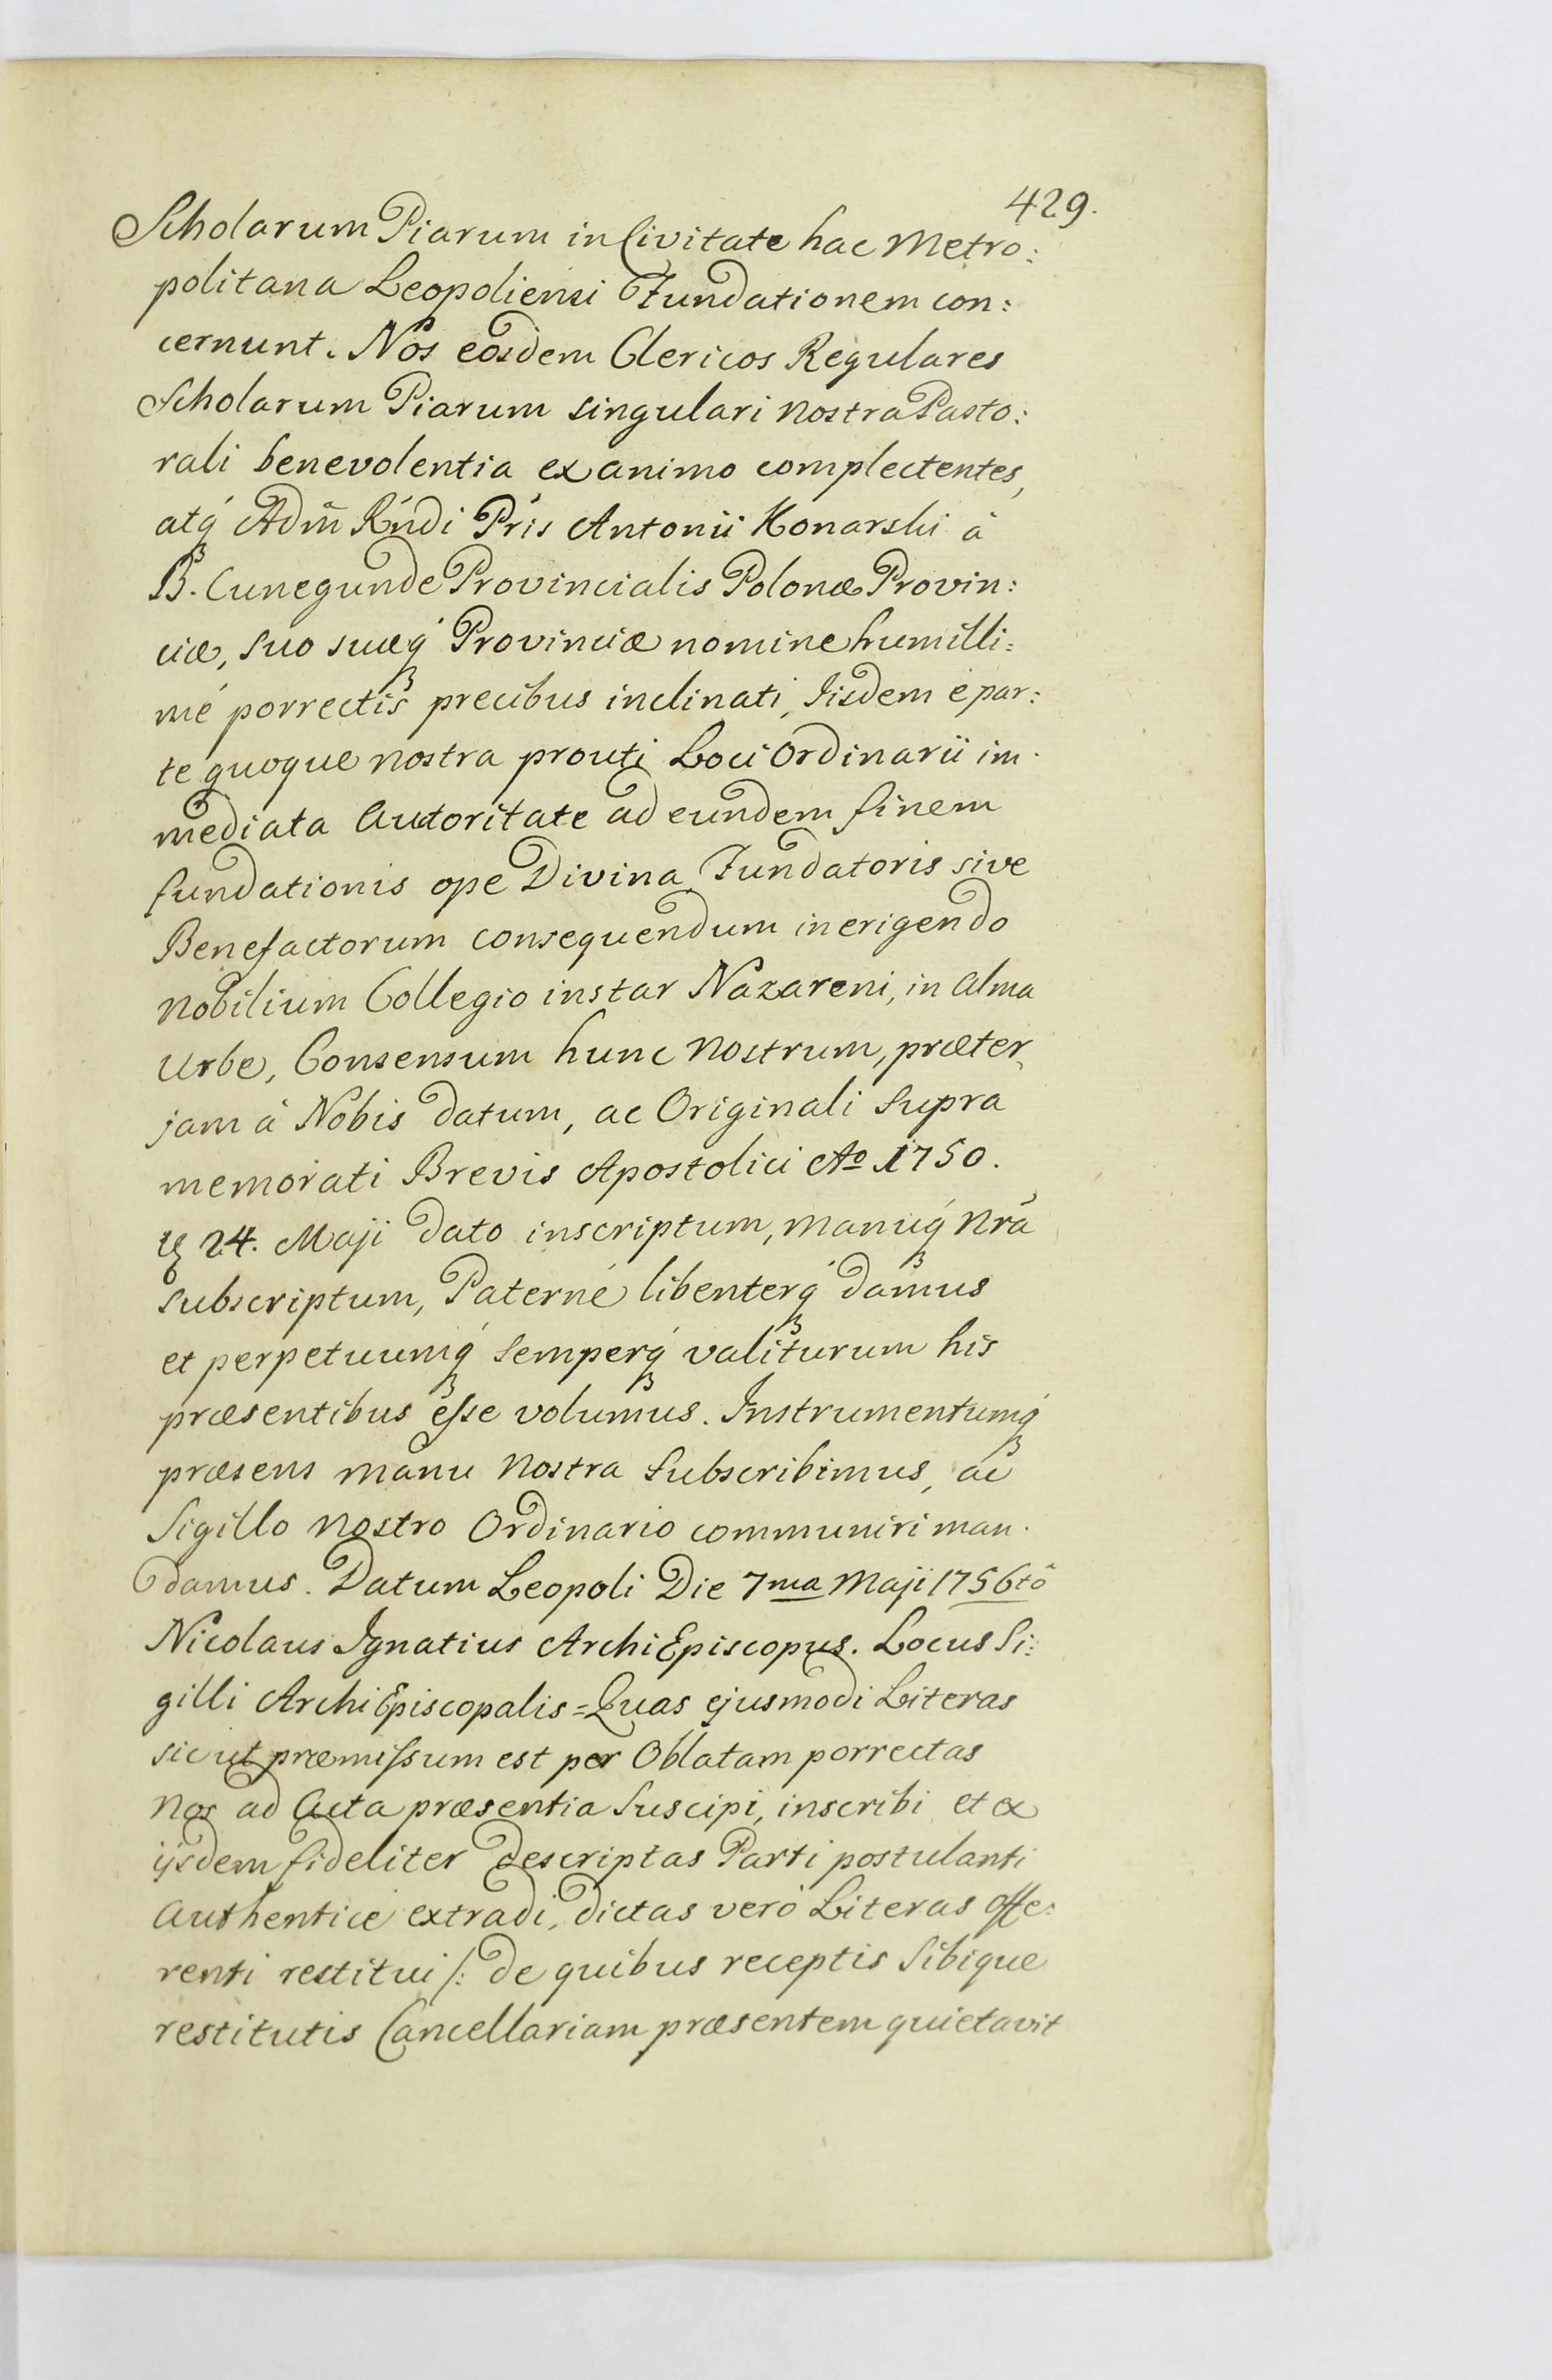 429.
Scholarum Piarum in Civitate hac Metro:
politana Leopoliensi Fundationem con:
cernunt. Nos eosdem Clericos Regulares
Scholarum Piarum singulari nostra Pasto:
rali benevolentia ex animo complectentes,
atq́ꝫ Adm̃ Rńdi Pŕis Antonii Konarski à
B. Cunegunde Provincialis Polonæ Provin:
ciæ, suo suæq́ꝫ Provinciæ nomine humilli:
mé porrectis precibus inclinati, Iisdem é par:
te quoque nostra prouti Loci Ordinarii im:
mediata Autoritate ad eundem finem
fundationis ope Divina, Fundatoris sive
Benefactorum consequendum in erigendo
Nobilium Collegio instar Nazareni, in Alma
Urbe, Consensum hunc Nostrum, præter
jam à Nobis datum, ac Originali supra
memorati Brevis Apostolici Aº 1750.
24. Maji dato inscriptum, manuq́ꝫ nr̃a
subscriptum, Paterné libenterq́ꝫ damus
et perpetuumq́ꝫ semperq́ꝫ valiturum his
præsentibus esse volumus. Instrumentumq́ꝫ
præsens manu Nostra subscribimus, ac
Sigillo Nostro Ordinario communiri man:
damus. Datum Leopoli Die 7ma Maji 1756tô
Nicolaus Ignatius ArchiEpiscopus. Locus Si:
gilli ArchiEpiscopalis = Quas ejusmodi Literas
sicut præmissum est per Oblatam porrectas
Nos ad Acta præsentia suscipi, inscribi et ex
ijsdem fideliter descriptas Parti postulanti
Authenticé extradi, dictas veró Literas offe:
renti restitui /: de quibus receptis Sibique
restitutis Cancellariam præsentem quietavit